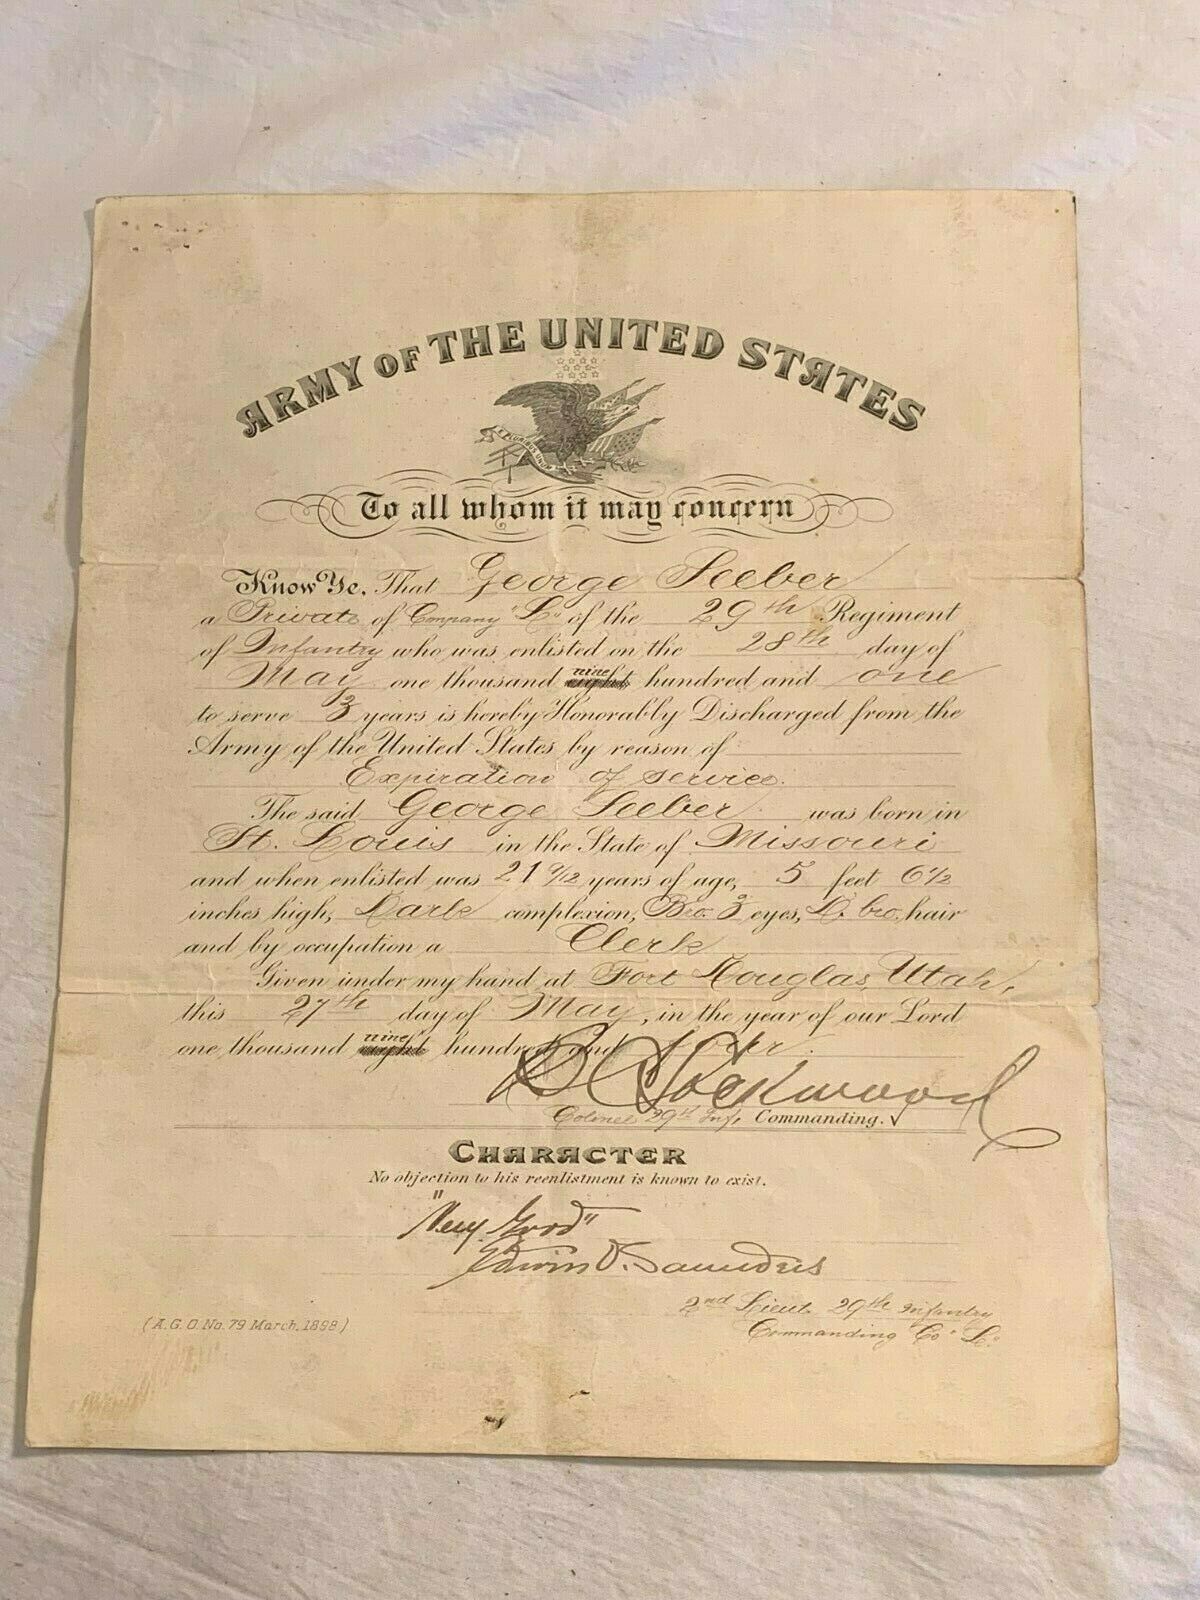 ARMY OF THE UNITED STATES
E PLURIBUS UNUM
To all whom it may concern
Know Ye, That George Seeber
a Private of Company "L" of the 29th Regiment
of Infantry who was enlisted on the 28th day of
May one thousand nine eight hundred and one
to serve 3 years is hereby Honorably Discharged from the
Army of the United States by reason of
Expiration of service.
The said George Seeber was born in
St. Louis in the State of Missouri
and when enlisted was 21 9/12 years of age, 5 feet 6 1/2
inches high, Dark complexion, Bro. 3 eyes, D. bro. hair
and by occupation a Clerk
Given under my hand at Fort Douglas, Utah,
this 27th day of May, in the year of our Lord
one thousand nine eight hundred and four.
B C Lockwood
Colonel 29th Inf, Commanding.
CHARACTER
No objection to his reenlistment is known to exist.
"Very Good"
Edwin O. Saunders
2nd Lieut. 29th Infantry
Commanding Co "L."
(A.G.O. No. 79 March, 1898)